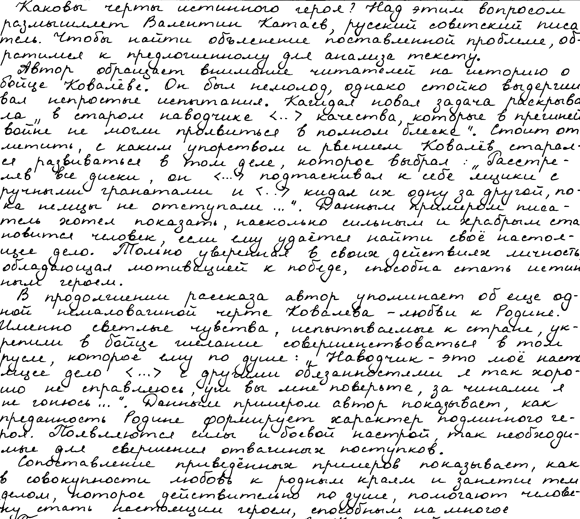 Каковы черты истинного героя? Над этим вопросом
размышляет Валентин Катаев, русский советский писа
тель. Чтобы найти объяснение поставленной проблеме, об-
ратимся к предложенному для анализа тексту.
Автор обращает внимание читателей на историю о
бойце Ковалёве. Он был немолод, однако стойко выдержи
вал непростые испытания. Каждая новая задача раскрыва
ла „в старом наводчике <...> качества, которые в прежней
войне не могли проявиться в полном блеске". Стоит от
метить, с каким упорством и рвением Ковалёв старал-
ся развиваться в том деле, которое выбрал: „Расстре-
ляв все диски, он <...> подтаскивал к себе ящики с
ручными гранатами и <...> кидал их одну за другой, по-
ка немцы не отступали ...". Данным примером писа-
тель хотел показать, насколько сильным и храбрым ста
новится человек, если ему удаётся найти своё настоя-
щее дело. Только уверенная в своих действиях личность
обладающая мотивацией к победе, способна стать истин
ным героем.
В продолжении рассказа автор упоминает об еще од-
ной немаловажной черте Ковалева - любви к Родине.
Именно светлые чувства, испытываемые к стране, ук-
репили в бойце желание совершенствоваться в том
русле, которое ему по душе: „Наводчик - это моё наст
ящее дело <...> с другими обязанностями я так хоро-
шо не справляюсь, уж вы мне поверьте, за чинами я
не гонюсь ...". Данным примером автор показывает, как
преданность Родине формирует характер подлинного ге-
роя. Появляются силы и боевой настрой, так необходи-
мые для свершения отважных поступков.
Сопоставление приведённых примеров показывает, как
в совокупности любовь к родным краям и занятие тем
делом, которое действительно по душе, помогают челове-
ку стать настоящим героем, способным на многое